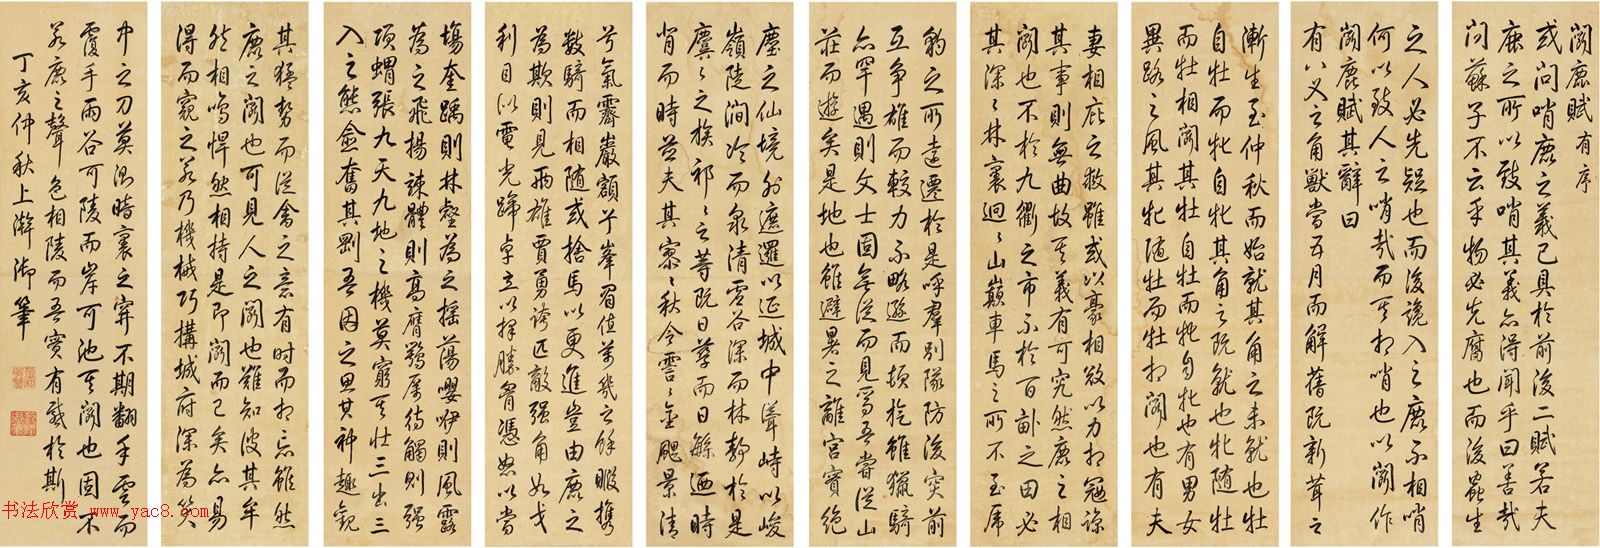 闘鹿賦有序
或问哨鹿之義已具於前後二賦若夫
鹿之所以致哨其義亦得聞乎曰善哉
问蘇子不云乎物必先腐也而後蟲生
之人必先疑也而後讒入之鹿不相哨
何以致人之哨哉而其相哨也以闘作
闘鹿賦其辭曰
有八义之角獸當五月而解舊既新茸之
漸生至仲秋而始就其角之未就也牡
自牡而牝自牝其角之既就也牝隨牡
而牡相闘其牡自牡而牝自牝也有男女
異路之風其牝随牡而牡相闘也有夫
妻相庇之救雖或以豪相效以力相冦諒
其事則無曲故其義有可究然鹿之相
闘也不於九衢之市不於百畝之田必
其深之林裏迴之山巔車馬之所不至虎
豹之所遠遷於是呼羣别隊防後突前
互争雄而較力不略避而頓旋雖獵騎
亦罕遇則文士固無從而見焉吾嘗從山
莊而遊矣是地也雖避暑之離宫實絶
塵之仙境外遮邏以延城中聳峙以峻
嶺陵澗冷而泉清雲谷深而林静於是
麌之族祁之等既日孳而日緜迺時
背而時並夫其寥之秋令霅之金颸景清
兮氣霽巖額兮峯眉值萬幾之餘暇携
数騎而相随或捨馬以更進豈由鹿之
為欺則見兩雄賈勇誇匹敵强角如戈
利目以電光蹄卓立以择勝胷憑怒以當
塲奎踽則林壑為之摇蕩嚶咿則風露
為之飛揚竦體則高膺鶚属待觸則强
項蝟張九天九地之機莫窮其壯三出三
入之態僉奮其剛吾因之思其神趣觀
其猛势而从禽之意有时而相忘雖然
鹿之闘也可見人之闘也難知彼其牟
然相鳴悍然相持是即闘而已矣亦易
得而窺之若乃機械巧搆城府深為笑
中之刀莫测暗裏之穽不期翻手雲而
覆手雨谷可陵而岸可池其闘也固不
若鹿之聲色相陵而吾實有感於斯
丁亥仲秋上澣御筆
书法欣赏 www.yac8.com